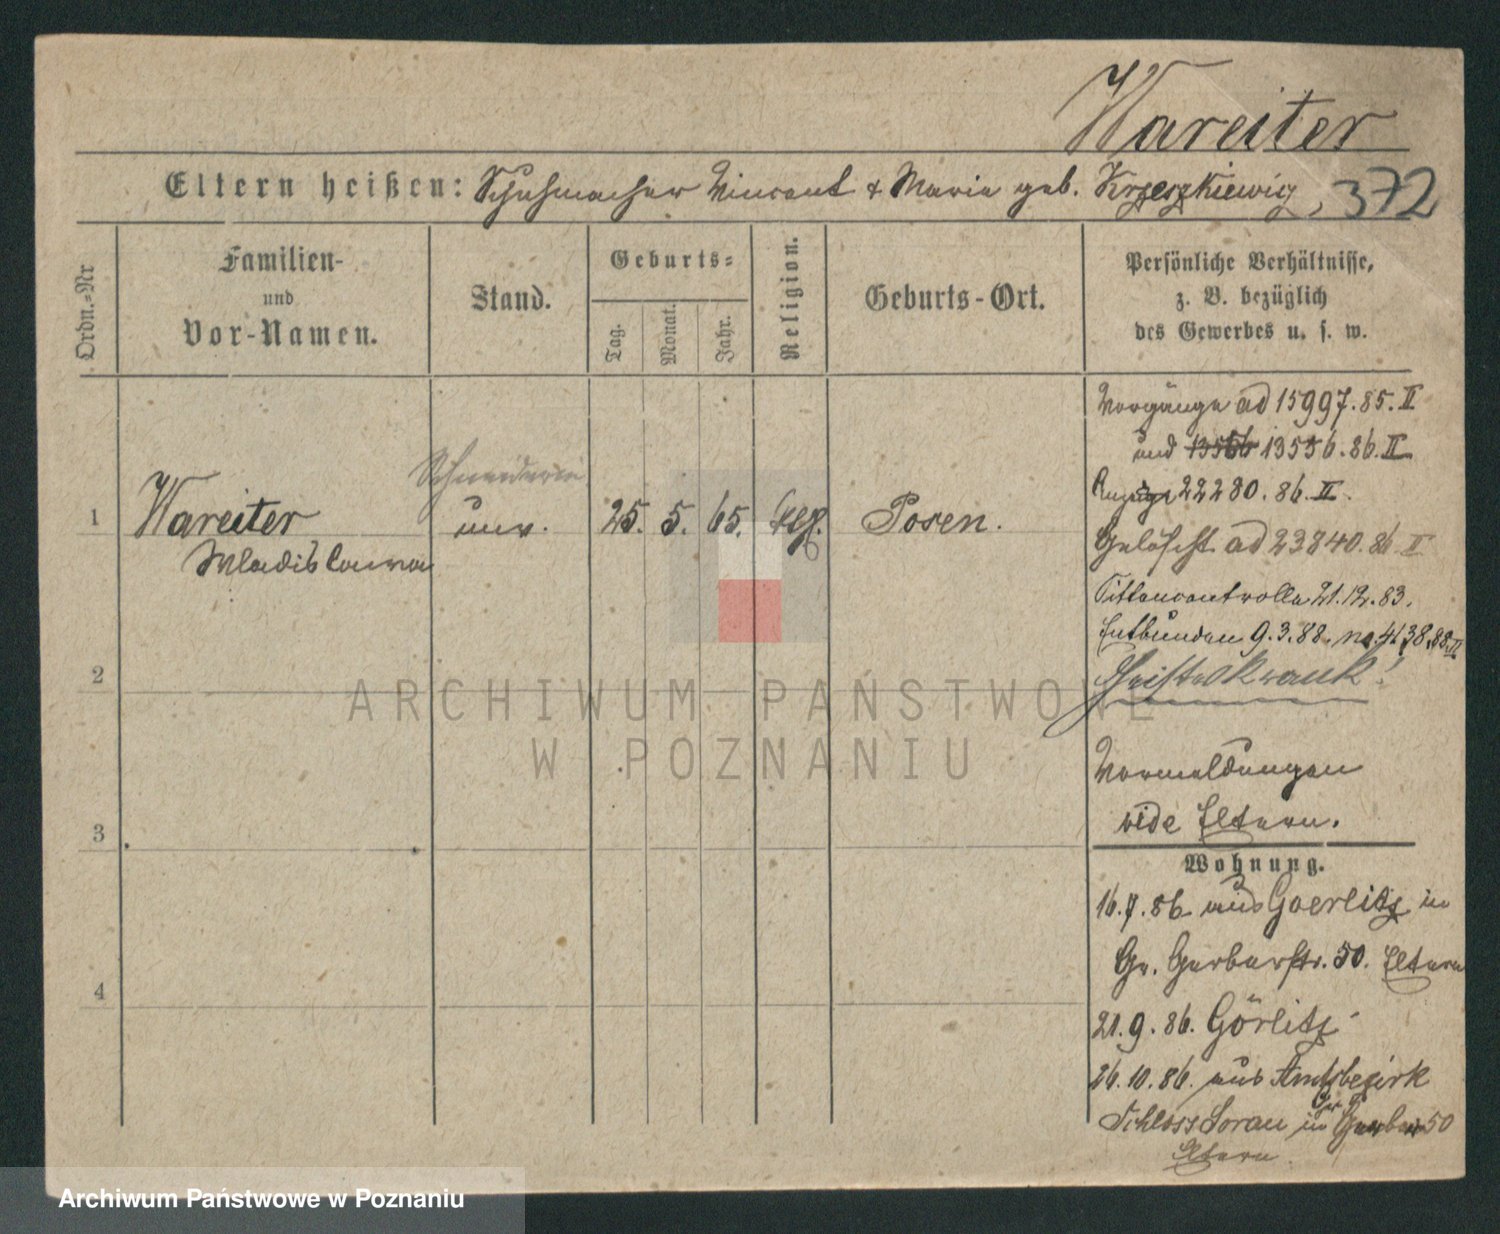 Wareiter
Eltern heißen: Schuhmacher Vincent & Maria geb. Krzeszkiewig, 372
Ordn.=Nr
Familien-
und
Vor-Namen.
Stand.
Geburts=
Tag.
Monat.
Jahr.
Religion.
Geburts-Ort.
Persönliche Verhältnisse,
z. B. bezüglich
des Gewerbes u. s. w.
1
Wareiter
Wladislawa
Schneiderin
unv.
25. 5. 65.
Posen.
Vorgänge ad 15997.85.II
und 13566 13556.86.II
22280.86.II.
Gelöscht ad 23840.86 II
Sittencontrolle 21.12.83.
Entbunden 9.3.88. no. 4138.88.II
Geisteskrank!
2
Vermeldungen
vide Eltern.
3
Wohnung.
16.7.86 aus Goerlitz in
Gr. Gerberstr. 50. Eltern
4
21.9.86. Görlitz
26.10.86. aus Amtsbezirk
Schloss Sorau in Gr. Gerber 50
Eltern.
ARCHIWUM PAŃSTWOWE
W POZNANIU
Archiwum Państwowe w Poznaniu